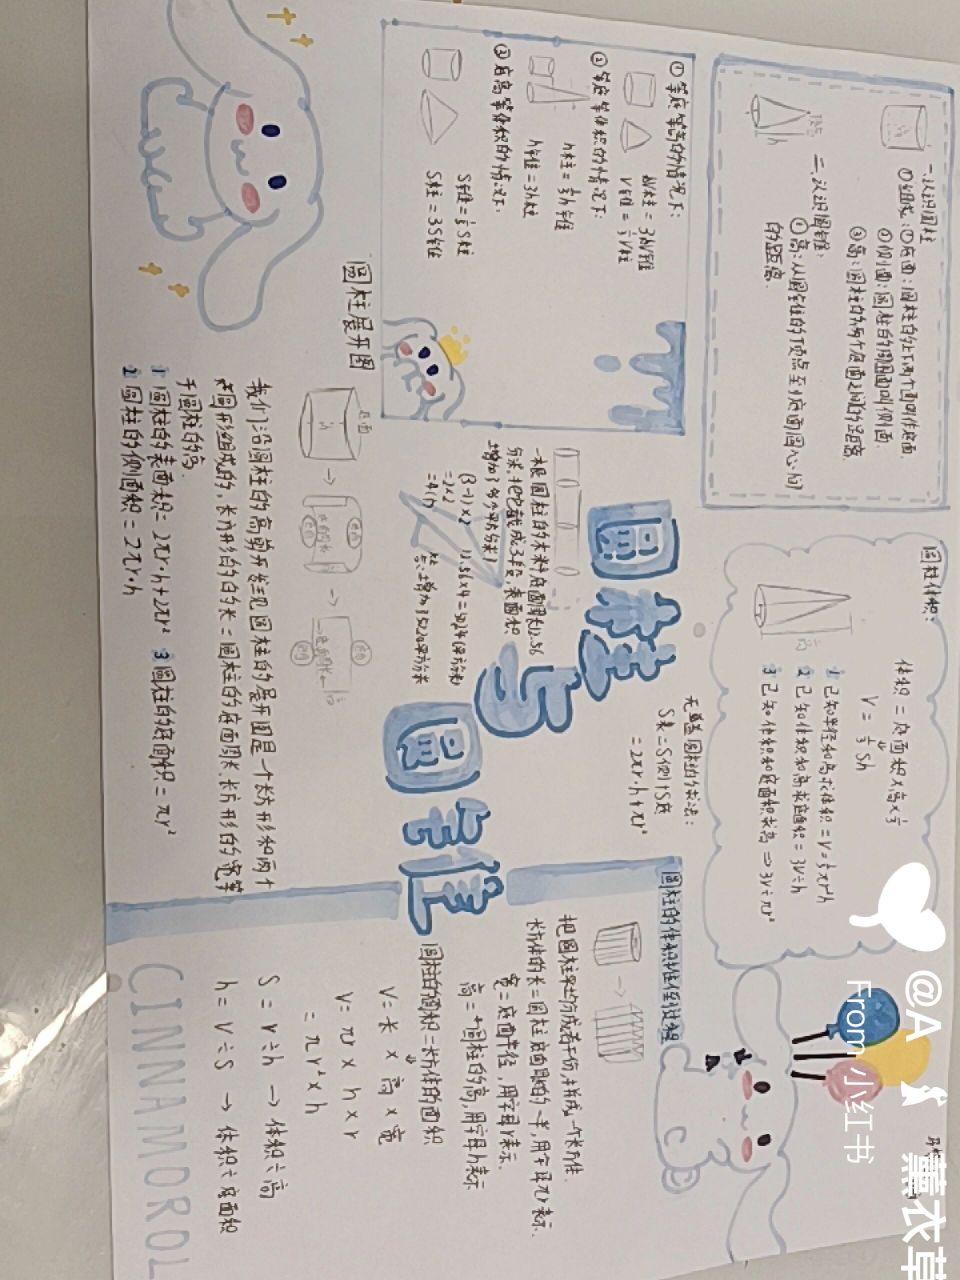 一.认识圆柱
①组成:①底面:圆柱的上下两个面叫作底面.
②侧面:圆柱的周围面叫侧面.
③高:圆柱的两个底面之间的距离.
二.认识圆锥:
①高:从圆锥的顶点至底面圆心的
的距离.
顶点
h
①等底等高的情况下:
V柱=3V锥
V锥=⅓V柱
②等底等体积的情况下:
h柱=⅓h锥
h锥=3h柱
③底高等体积的情况下:
S锥=⅓S柱
S柱=3S锥
圆柱与圆锥
一根圆柱的木料底面周长12.56
分米,把它截成3段,表面积
增加了多少平方分米?
(3-1)×2
=2×2
=4(个)
12.56×4=50.24(平方分米)
答:增加了50.24平方分米
圆柱展开图
底面
我们沿圆柱的高剪开发现圆柱的展开图是一个长方形和两个
圆形组成的,长方形的的长=圆柱的底面周长,长方形的的宽等
于圆柱的高.
1 圆柱的表面积=2πr·h+2πr² 3 圆柱的底面积=πr²
2 圆柱的侧面积=2πr·h
圆柱体积:
体积=底面积×高×⅓
V=⅓Sh
1 已知半径和高求体积=V=⅓πr²h
2 已知体积和高求底面积=3V÷h
3 已知体积和底面积求高⇒3V÷πr²
无盖圆柱的求法:
S表=S侧+S底
=2πr·h+πr²
圆柱的体积推住到过程
把圆柱平均分成若干份,拼成一个长方体.
长方体的长=圆柱底面周的一半,用字母πr表示.
宽=底面半径,用字母r表示.
高=圆柱的高,用字母h表示
圆柱的面积=长方体的面积
V=长×高×宽
V=πr×h×r
=πr²×h
S=V÷h → 体积÷高
h=V÷S → 体积÷底面积
CINNAMOROL
@A 薰衣草
From 小红书